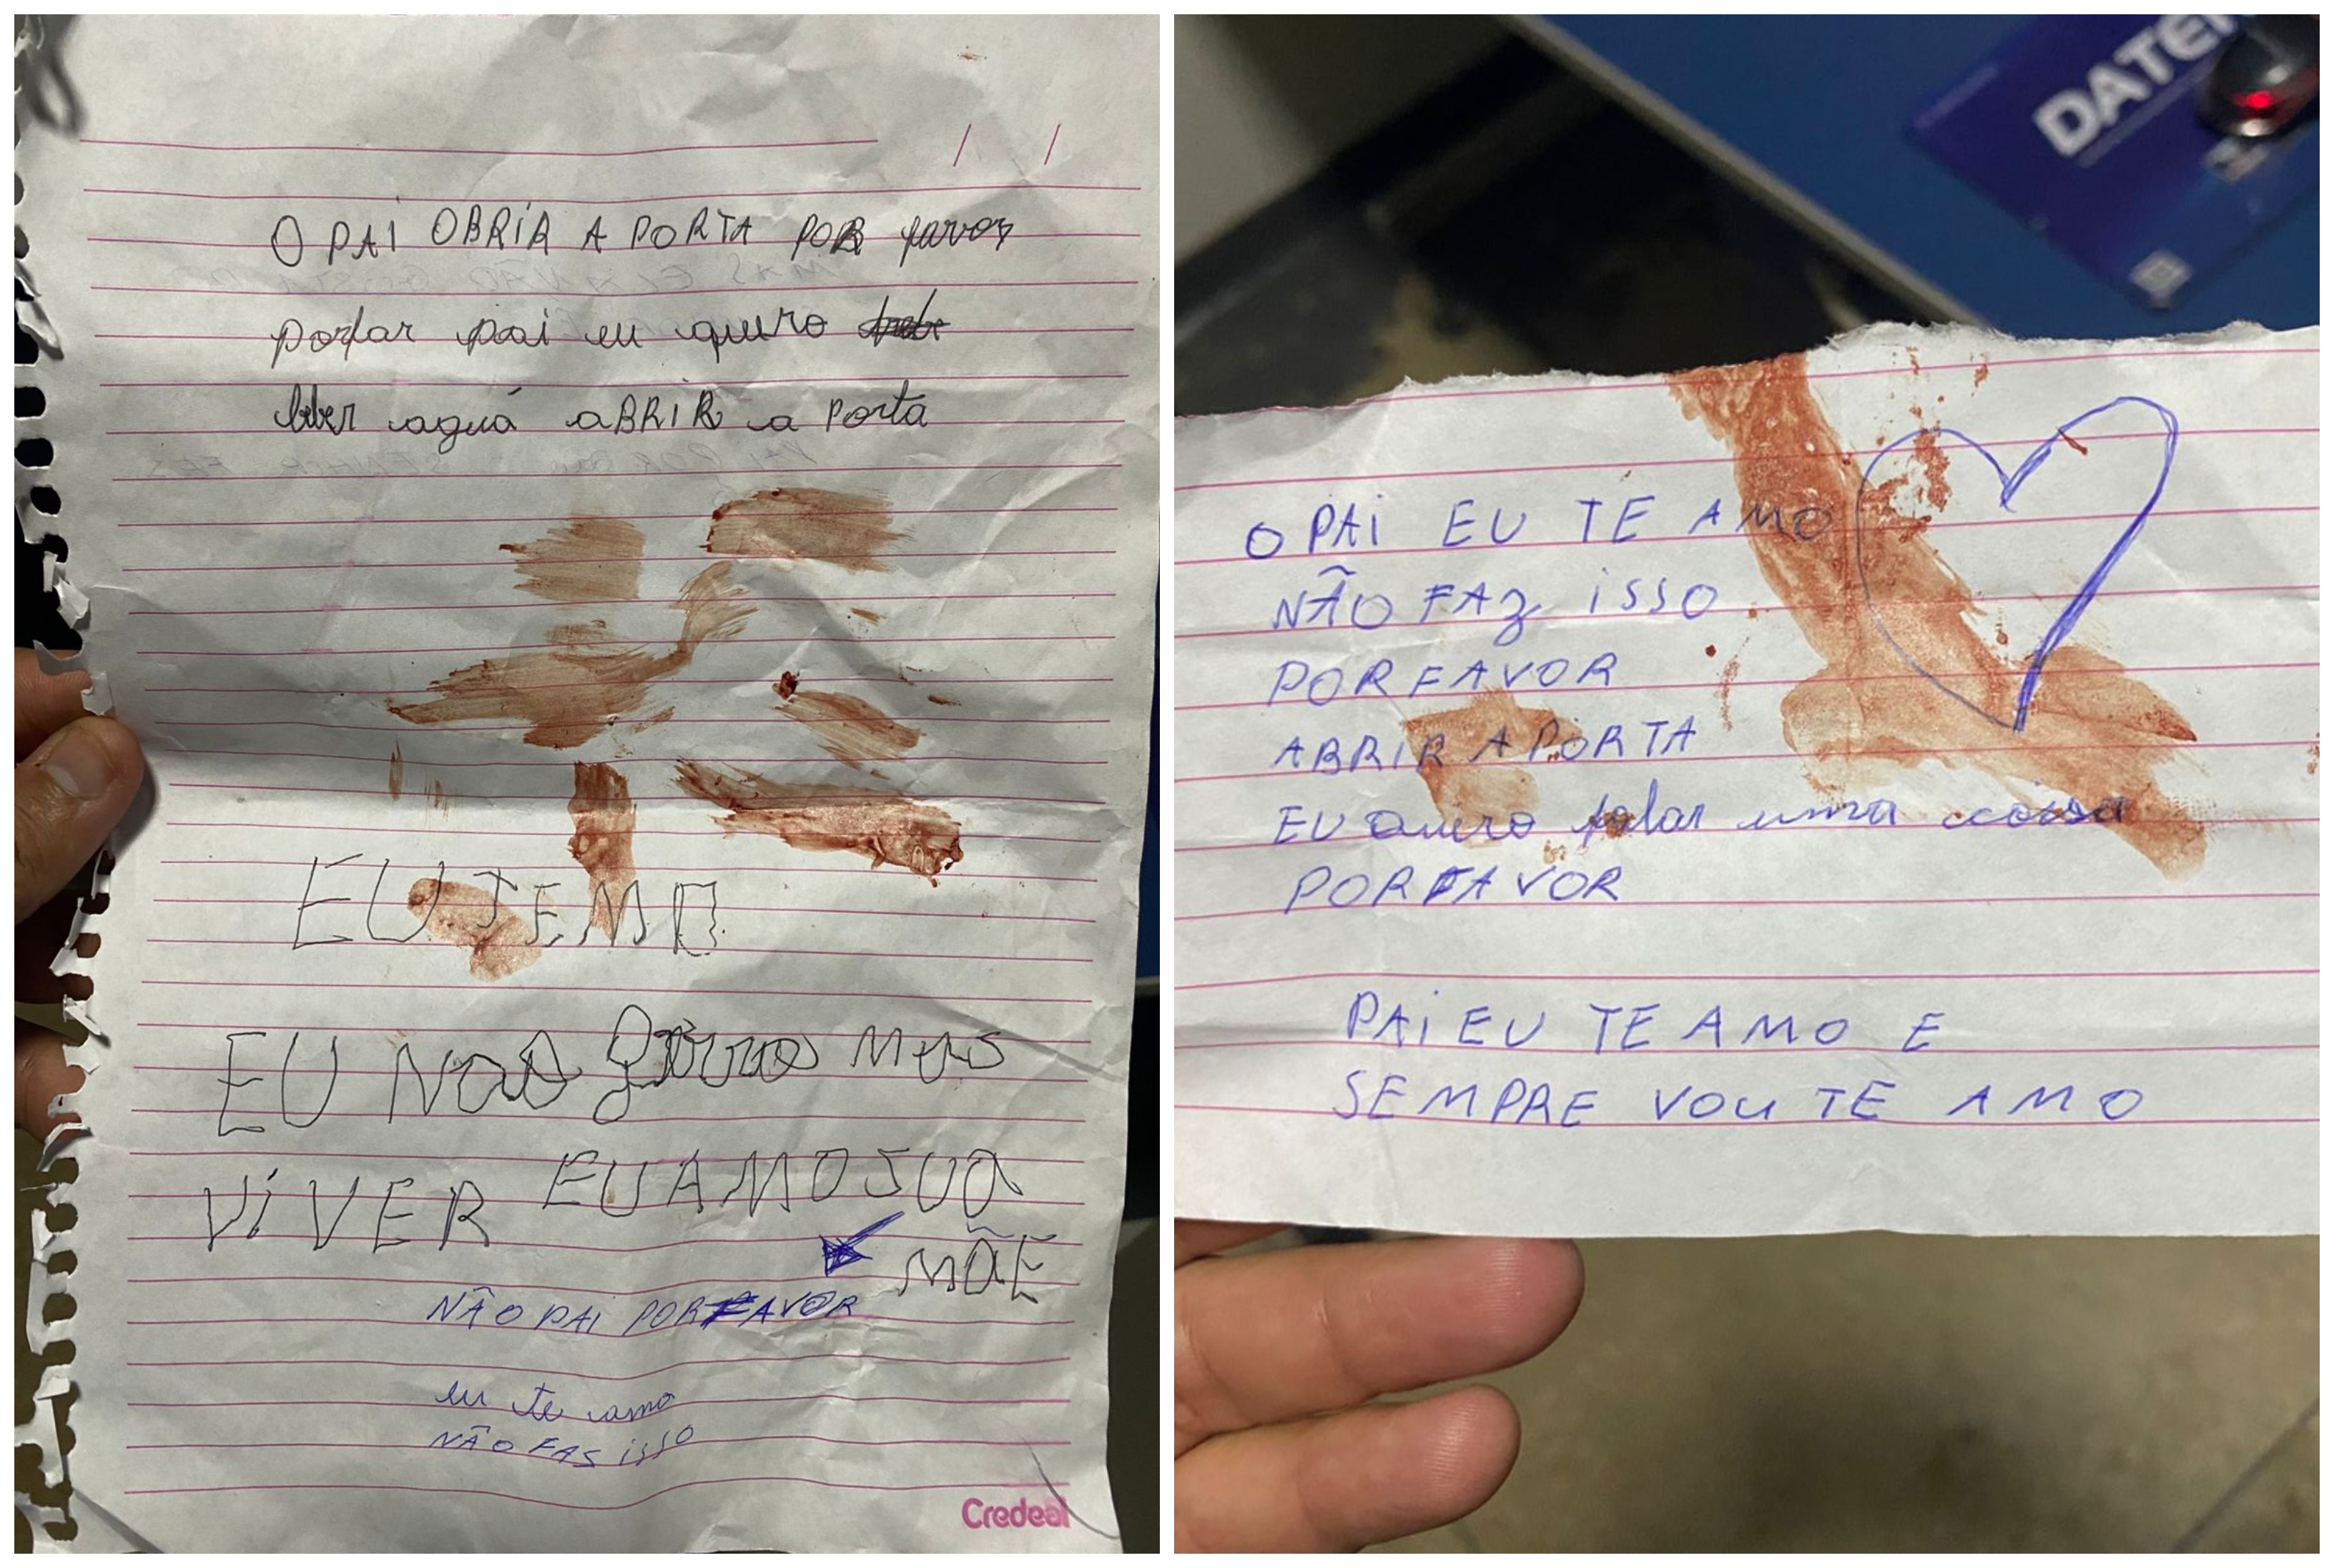 O PAI OBRIR A PORTA POR favor
porfar pai eu quero
beber aguá aBRIR a Porta
EU TEMO
EU NãO Quero Mas
ViVER EU AMO SUA
MÃE
NÃO PAI PORFAVOR
eu te amo
NÃO FAS isso
Credeal
DATEN
O PAi EU TE AMO
NÃO FAz iSSO
POR FAVOR
ABRIR A PORTA
EU Quero falar uma coisa
PORFAVOR
PAi EU TE AMO E
SEMPRE VOU TE AMO